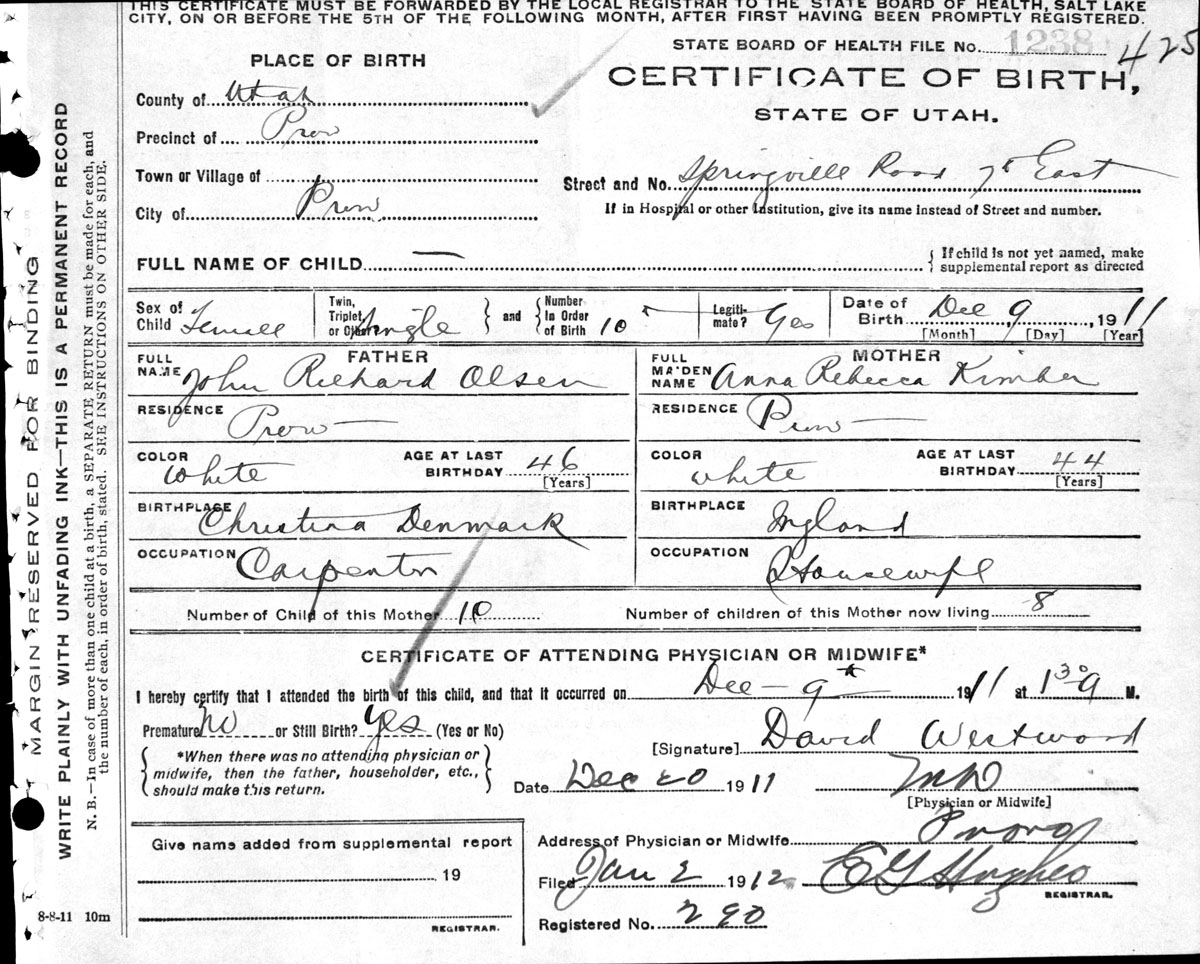 THIS CERTIFICATE MUST BE FORWARDED BY THE LOCAL REGISTRAR TO THE STATE BOARD OF HEALTH, SALT LAKE
CITY, ON OR BEFORE THE 5TH OF THE FOLLOWING MONTH, AFTER FIRST HAVING BEEN PROMPTLY REGISTERED.
STATE BOARD OF HEALTH FILE No. 1238 425
PLACE OF BIRTH
CERTIFICATE OF BIRTH,
STATE OF UTAH.
County of Utah
Precinct of Provo
Town or Village of
City of Provo
Street and No. Springville Road 7th East
If in Hospital or other Institution, give its name instead of Street and number.
FULL NAME OF CHILD —
{ If child is not yet named, make
supplemental report as directed
Sex of Child Female
Twin, Triplet, or Other Single
and
Number In Order of Birth 10
Legiti-mate? Yes
Date of Birth Dec 9, 1911
[Month] [Day] [Year]
FATHER
FULL NAME John Richard Olsen
RESIDENCE Provo
COLOR White
AGE AT LAST BIRTHDAY 46
[Years]
BIRTHPLACE Christina Denmark
OCCUPATION Carpenter
MOTHER
FULL MAIDEN NAME Anna Rebecca Kimber
RESIDENCE Provo
COLOR White
AGE AT LAST BIRTHDAY 44
[Years]
BIRTHPLACE Ingland
OCCUPATION Housewife
Number of Child of this Mother 10
Number of children of this Mother now living 8
CERTIFICATE OF ATTENDING PHYSICIAN OR MIDWIFE*
I hereby certify that I attended the birth of this child, and that it occurred on Dec - 9th 1911 at 1 30 a M.
Premature No or Still Birth? Yes (Yes or No)
*When there was no attending physician or
midwife, then the father, householder, etc.,
should make this return.
[Signature] David Westwood
Date Dec 20 1911 MD
[Physician or Midwife]
Give name added from supplemental report
19
REGISTRAR.
Address of Physician or Midwife Provo
Filed Jan 2 1912 E G Hughes
REGISTRAR.
Registered No. 290
8-8-11 10m
MARGIN RESERVED FOR BINDING
WRITE PLAINLY WITH UNFADING INK—THIS IS A PERMANENT RECORD
N. B.—In case of more than one child at a birth, a SEPARATE RETURN must be made for each, and
the number of each, in order of birth, stated. SEE INSTRUCTIONS ON OTHER SIDE.